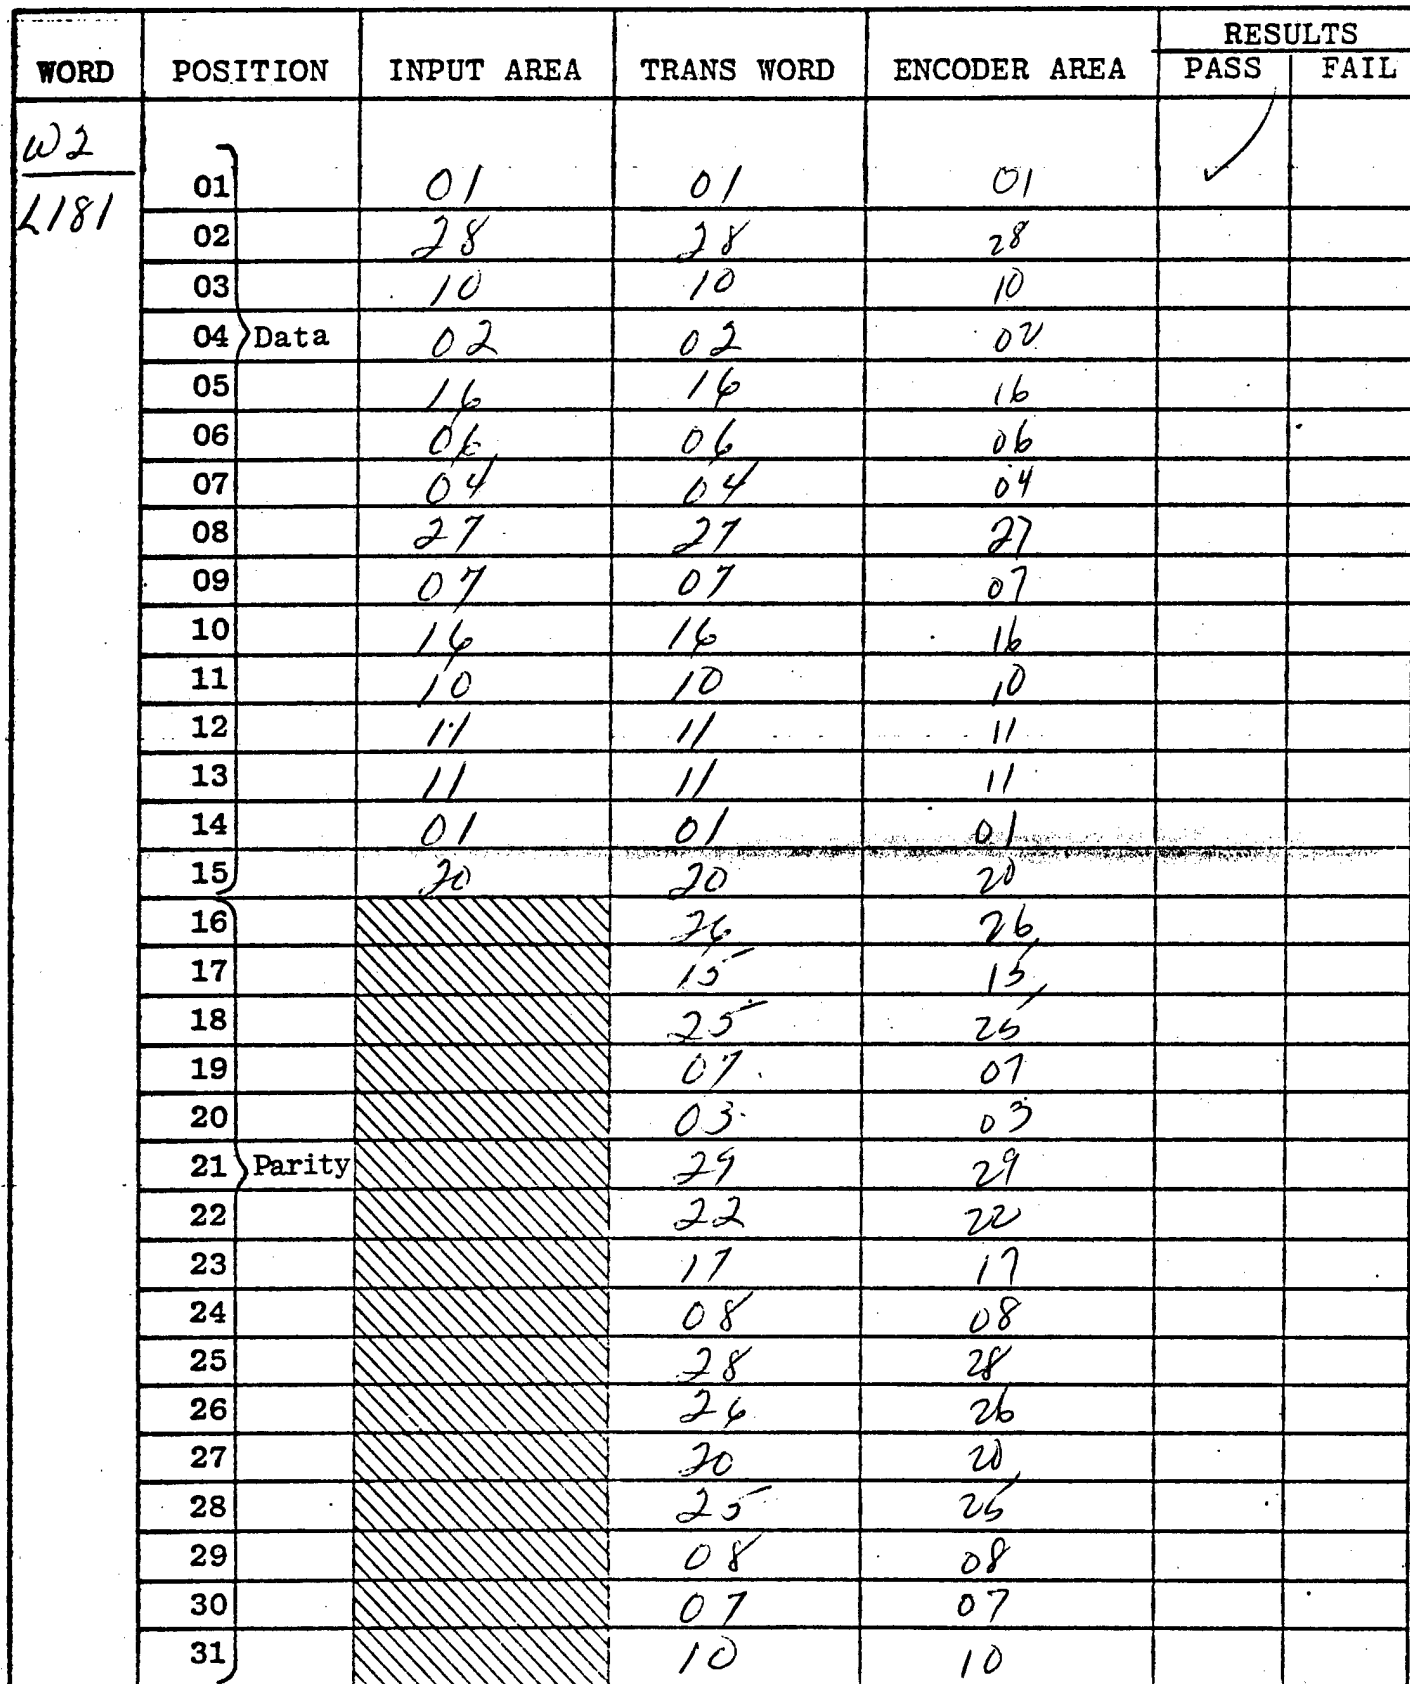 RESULTS
WORD POSITION INPUT AREA TRANS WORD ENCODER AREA PASS FAIL
W2
L181
01 01 01 01 ✓
02 28 28 28
03 10 10 10
04 Data 02 02 02
05 16 16 16
06 06 06 06
07 04 04 04
08 27 27 27
09 07 07 07
10 16 16 16
11 10 10 10
12 11 11 11
13 11 11 11
14 01 01 01
15 20 20 20
16 26 26
17 15 15
18 25 25
19 07 07
20 03 03
21 Parity 29 29
22 22 22
23 17 17
24 08 08
25 28 28
26 26 26
27 20 20
28 25 25
29 08 08
30 07 07
31 10 10